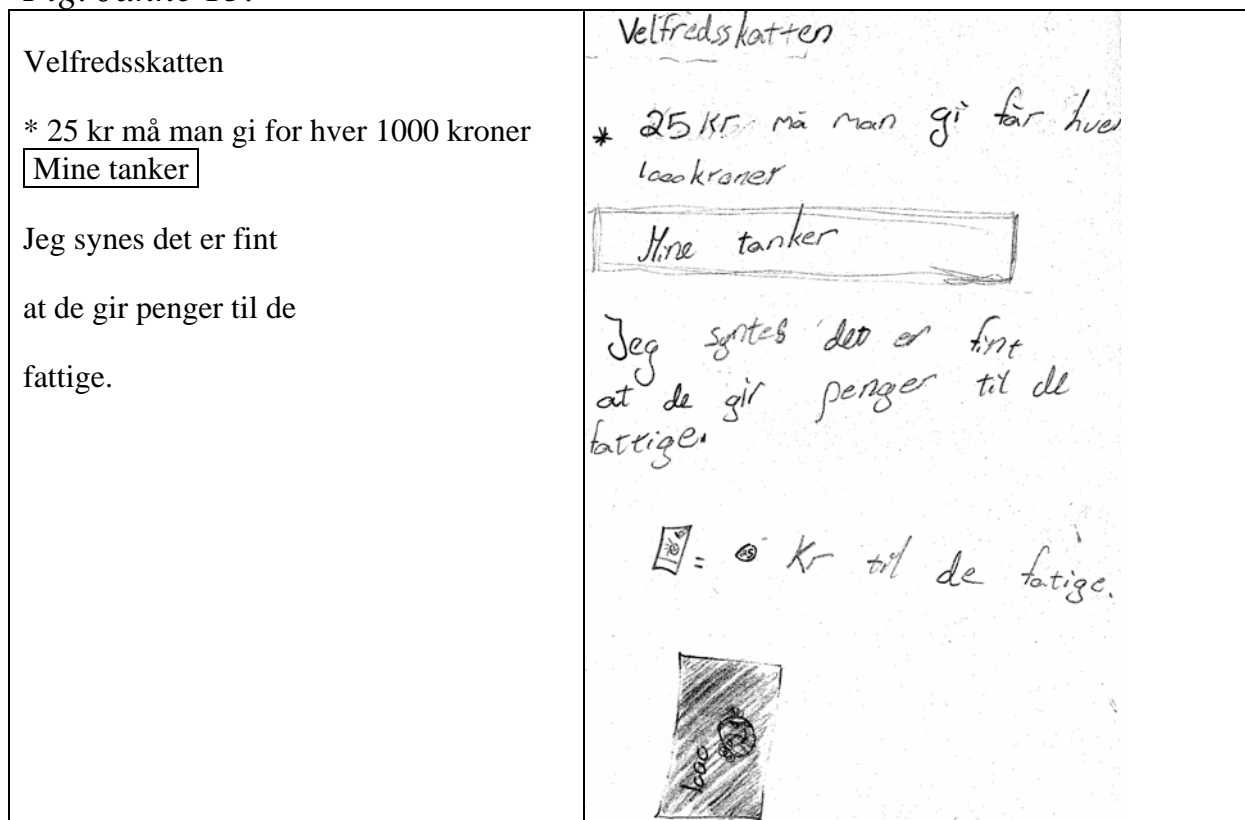 Velfredsskatten
* 25 kr må man gi for hver 1000 kroner
Mine tanker
Jeg synes det er fint
at de gir penger til de
fattige.
Velfredsskatten
* 25 Kr må man gi får hver
1000 kroner
Mine tanker
Jeg syntes det er fint
at de gir penger til de
fattige.
= Kr til de fatige.
1000